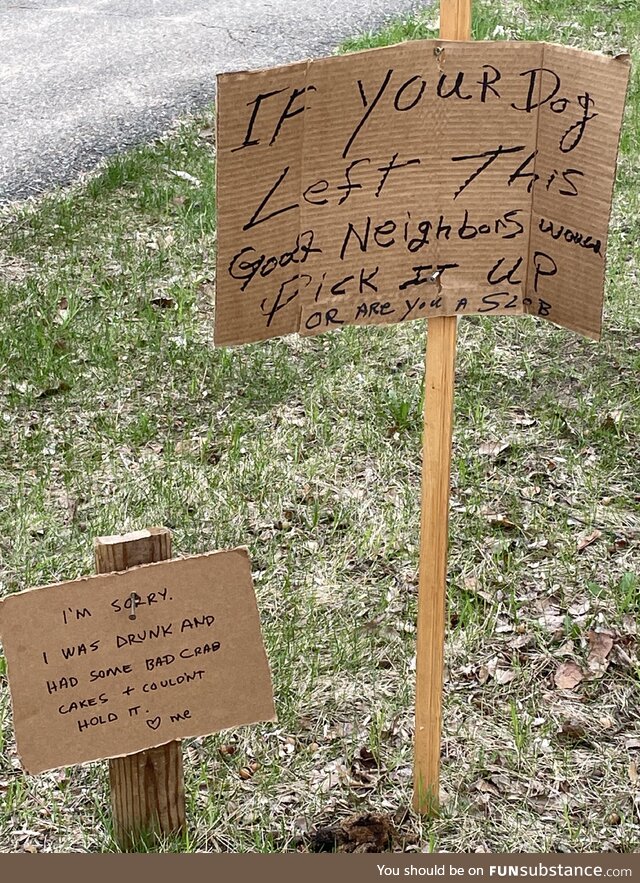 IF YOUR Dog
Left This
Good Neighbors would
Pick IT UP
OR ARE YOU A SLOB
I'M SORRY.
I WAS DRUNK AND
HAD SOME BAD CRAB
CAKES + COULDN'T
HOLD IT. ♡ me
You should be on FUNsubstance.com